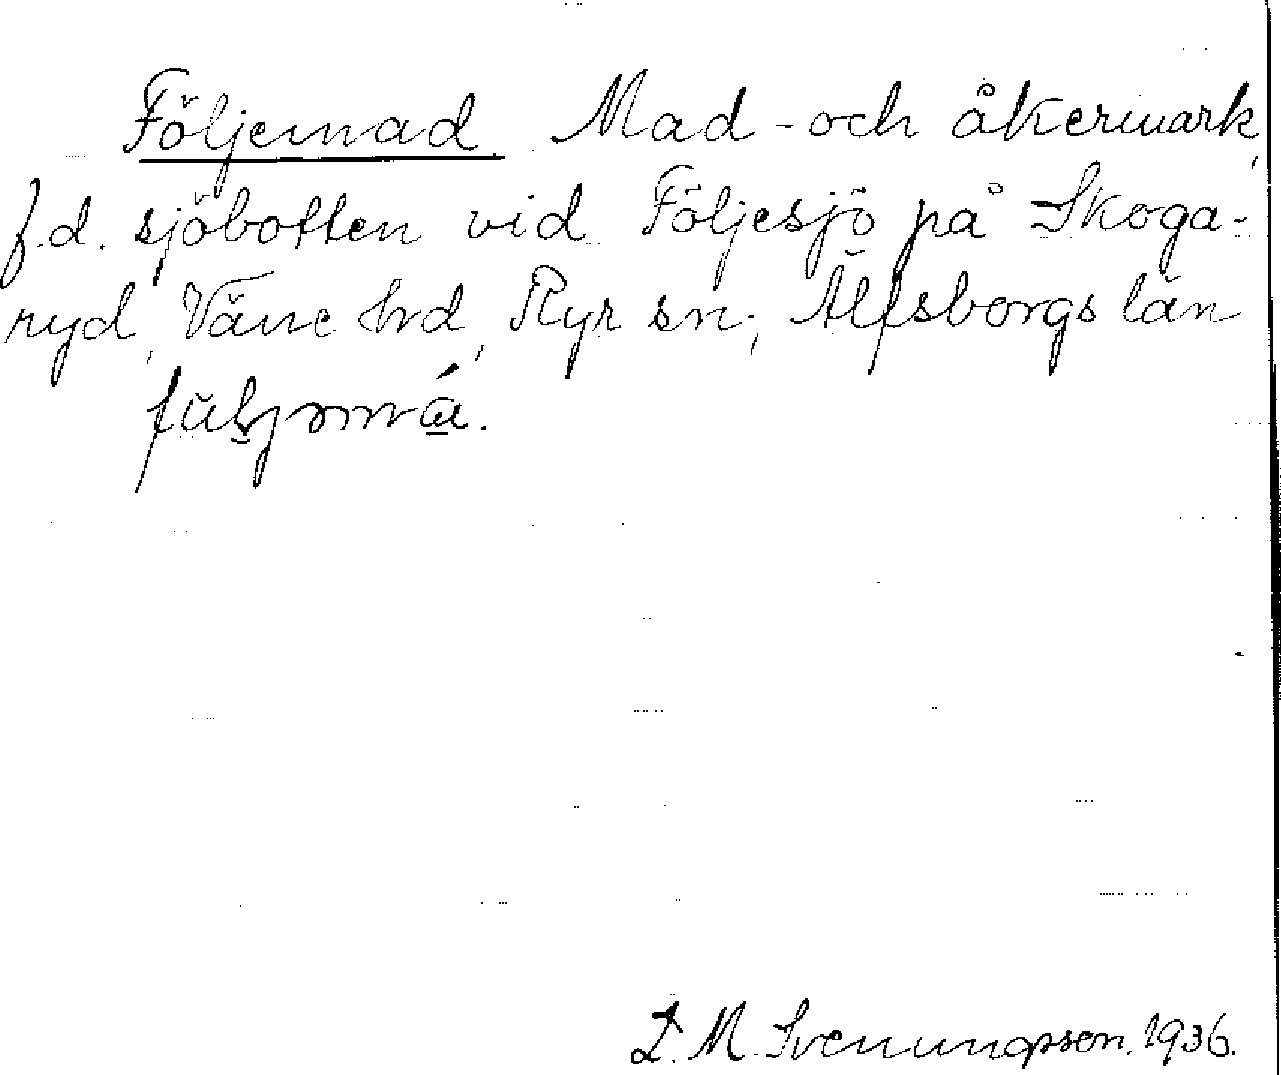 Följemad. Mad - och åkermark,
f.d. sjöbotten vid Följesjö på Skoga-
ryd, Väne hrd, Ryr sn., Älfsborgs län
L. M. Svenungsson. 1936.